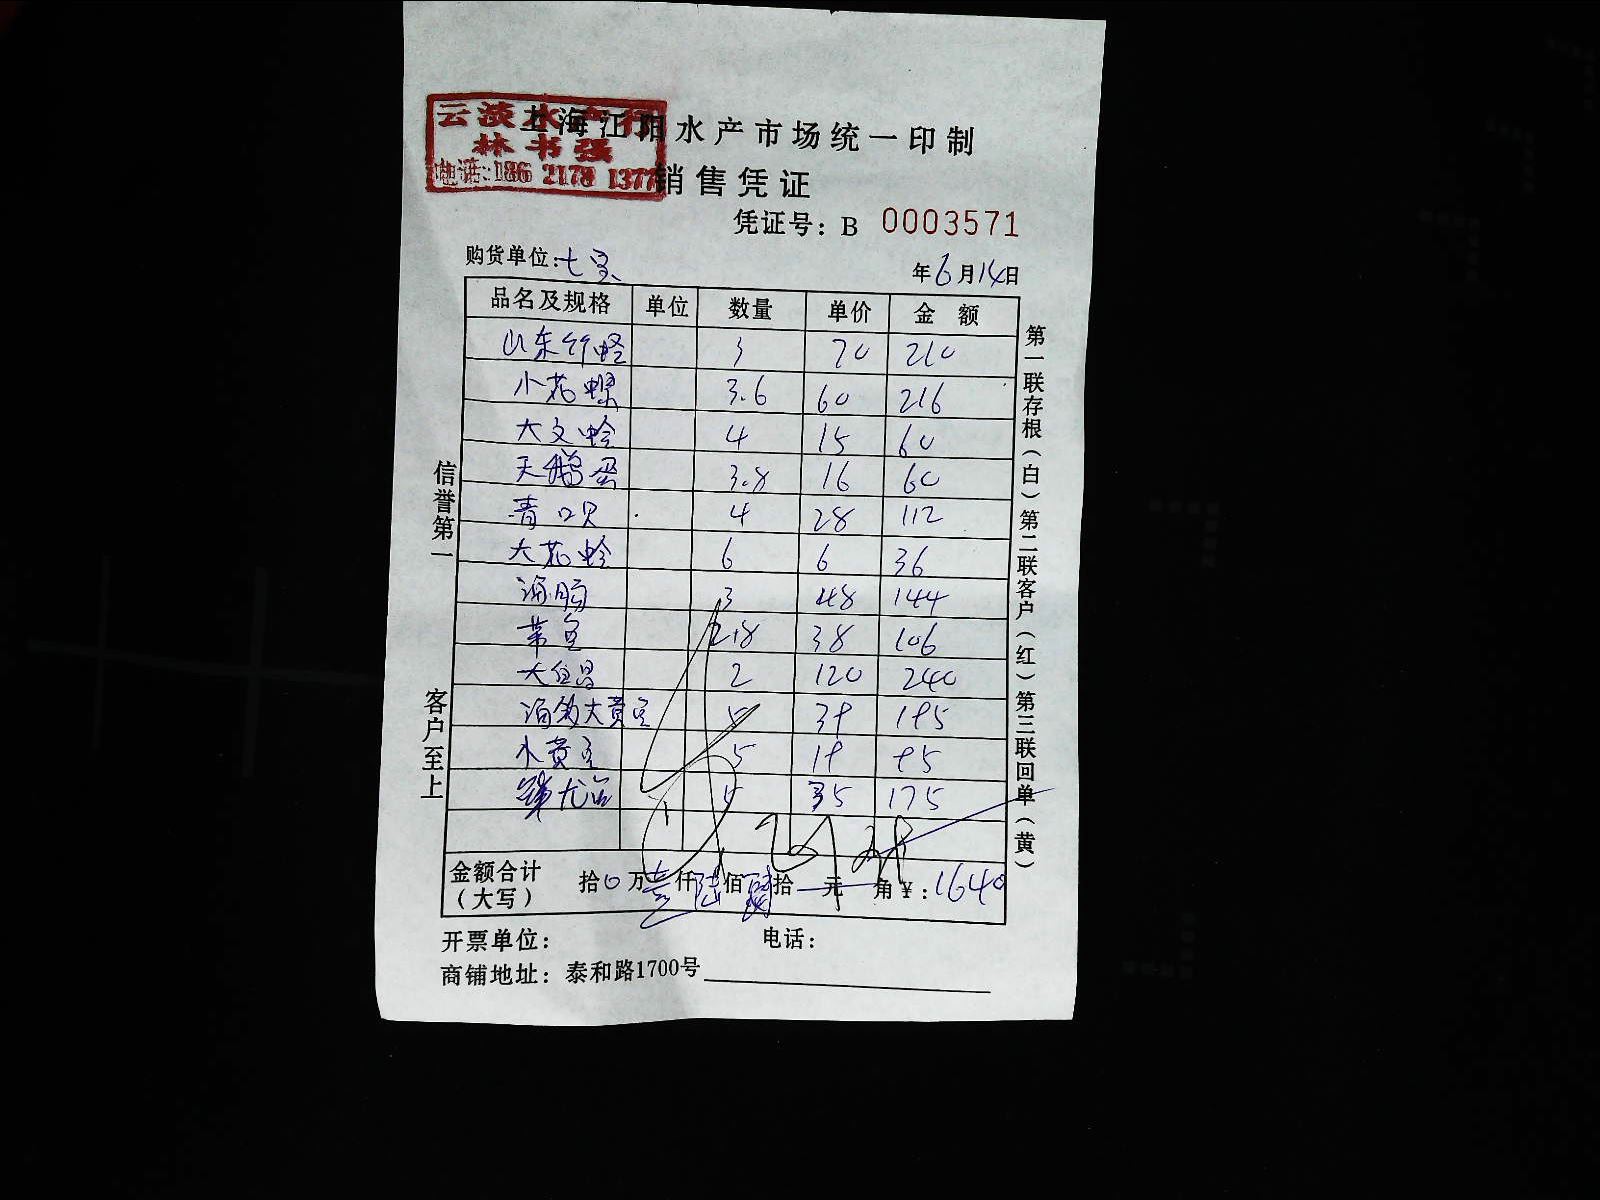 云淡水产行
林书强
电话:186 2179 1377
上海江阳水产市场统一印制
销售凭证
凭证号: B 0003571
购货单位: 七宝
年6月14日
品名及规格 单位 数量 单价 金 额
山东竹蛏 3 70 210
小花螺 3.6 60 216
大文蛤 4 15 60
天鹅蛋 3.8 16 60
青口贝 4 28 112
大花蛤 6 6 36
海肠 3 48 144
带鱼 2.8 38 106
大白昌 2 120 240
海钓大黄鱼 5 39 195
小黄鱼 5 19 95
5 35 175
金额合计
(大写) 拾0万壹仟陆佰肆拾 元 角¥: 1640
开票单位: 电话:
商铺地址: 泰和路1700号
信誉第一 客户至上
第一联存根(白)第二联客户(红)第三联回单(黄)